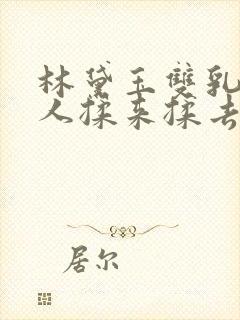 林黛玉双乳
人揉来揉去
居尔